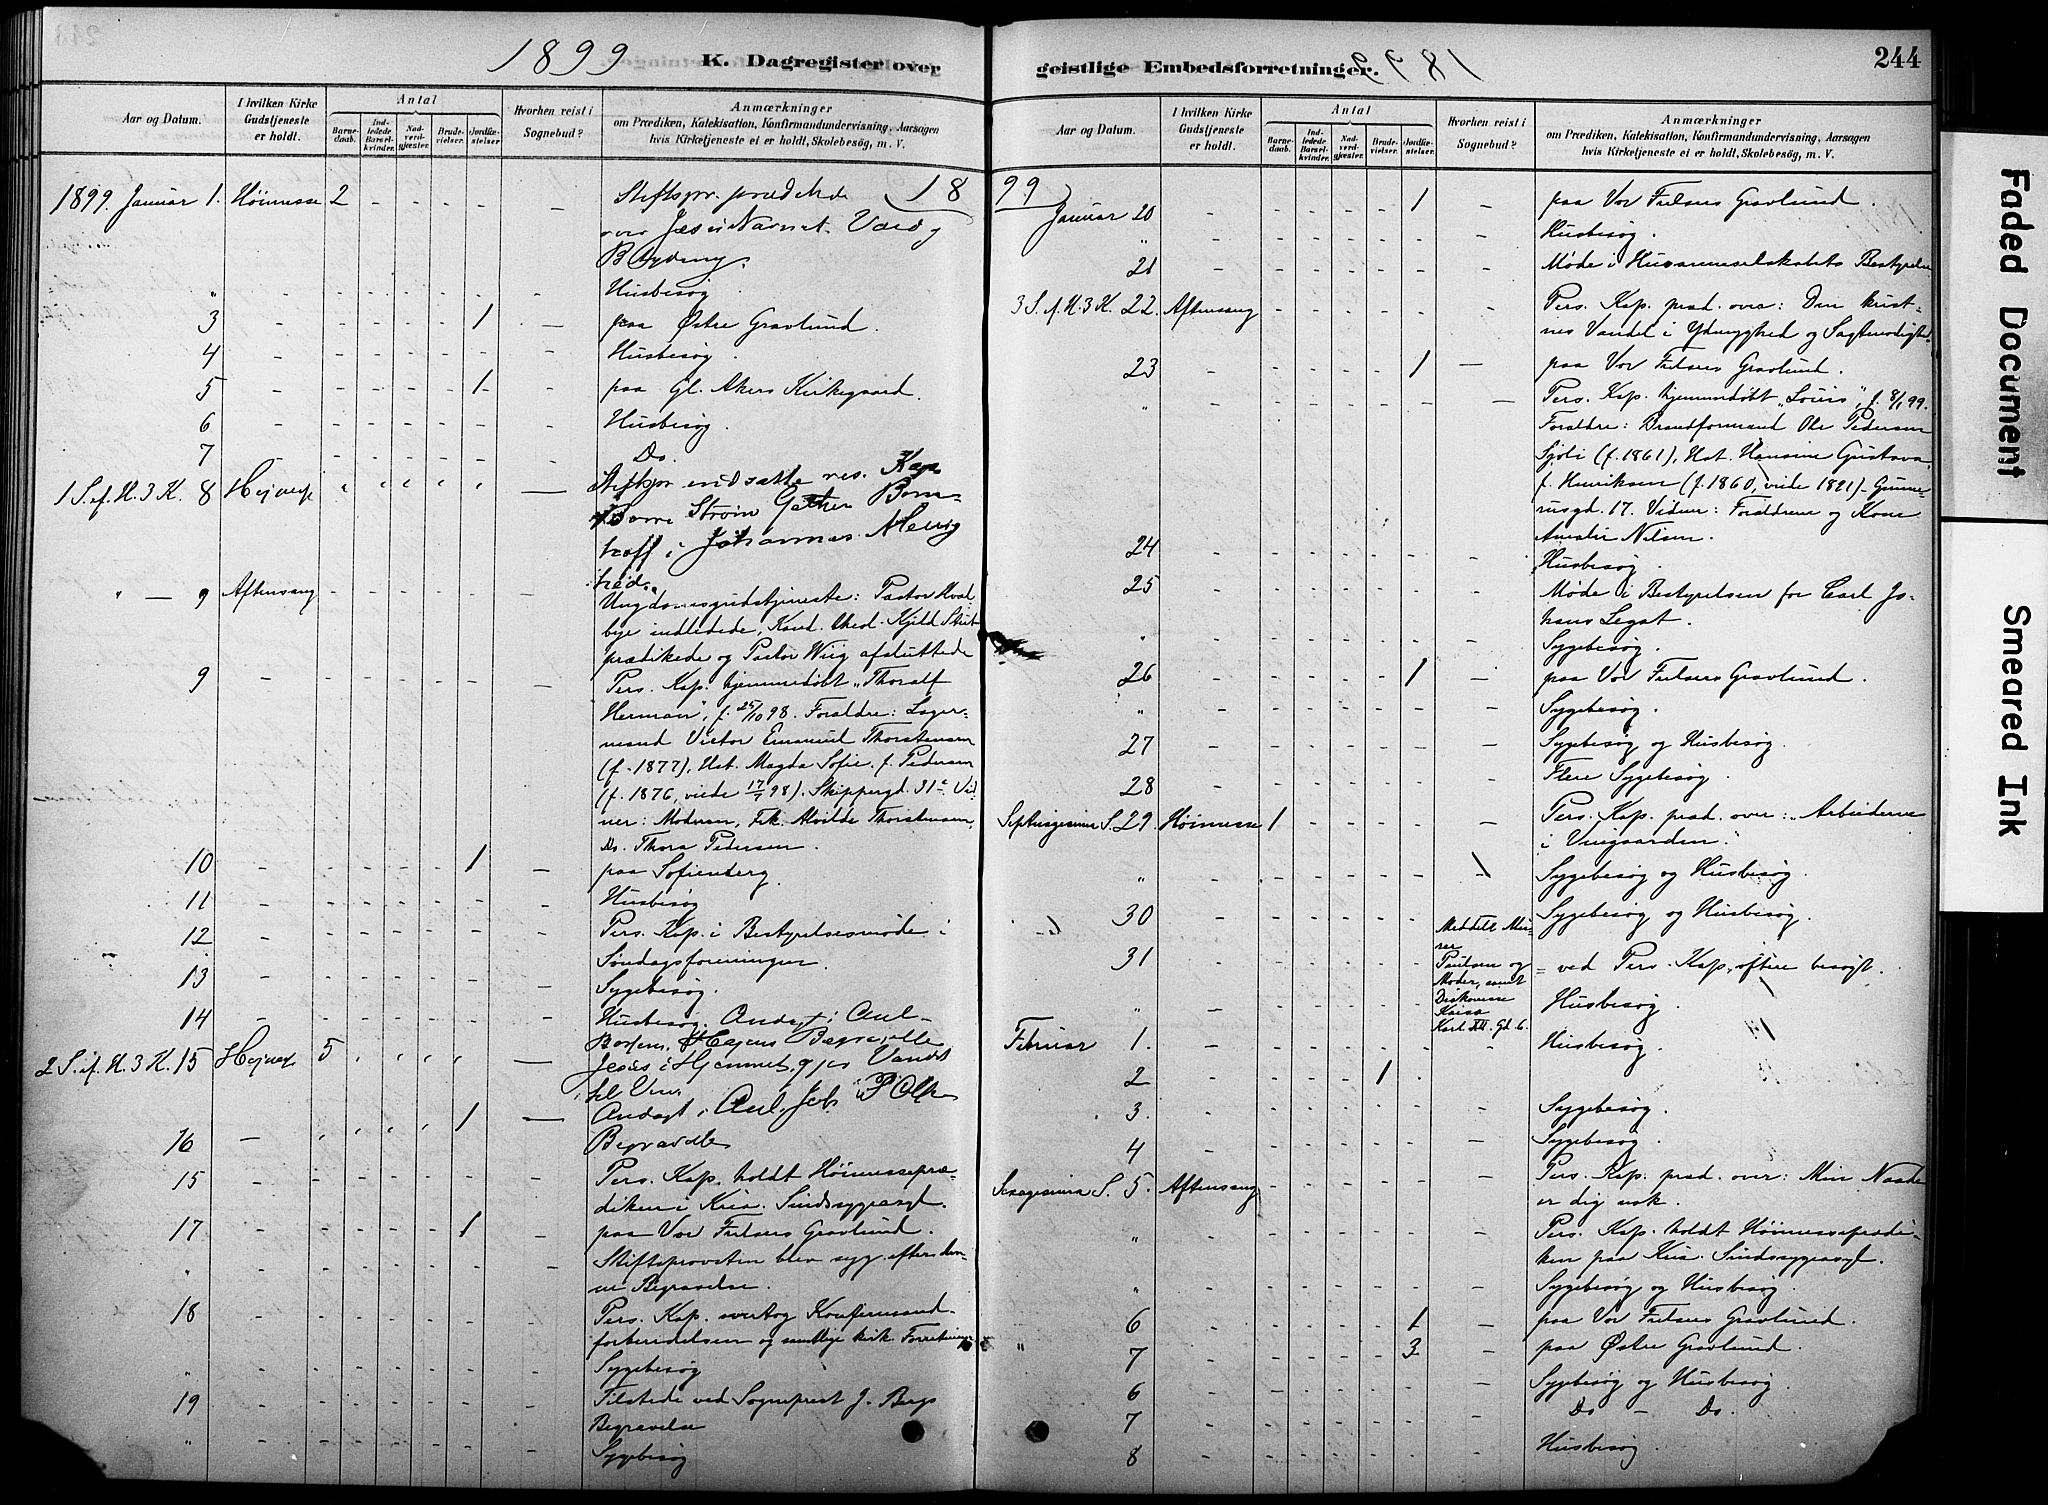 1899
K. Dagregister over
Aar og Datum.
I hvilken Kirke Gudstjeneste er holdt.
Antal
Barne-daab.
Ind-ledede Barsel-kvinder.
Nad-verd-gjæster.
Brude-vielser.
Jordfæ-stelser
Hvorhen reist i Sognebud?
Anmærkninger
om Prædiken, Katekisation, Konfirmandundervisning, Aarsagen
hvis Kirketjeneste ei er holdt, Skolebesög, m. V.
1899. Januar 1. Høimesse 2 - - - - - Stiftspr. prædikede
over Jesu Navnet. Værd og
Betydning.
" - - - - - - - Husbesøg.
3 - - - - - 1 - paa Østre Gravlund.
4 - - - - - - - Husbesøg.
5 - - - - - 1 - paa Gl. Akers Kirkegaard.
6 - - - - - - - Husbesøg.
7 - - - - - - - Do.
1 S. ef. H. 3 K. 8 Højmesse Stiftspr indsatte res. Kap
i Johannes Menig
hed.
" — 9 Aftensang - - - - - - Ungdomsgudstjeneste: Pastor Hval
bye indledede, Kand. theol. Kjeld Stub
prædikede og Pastor Wiig afsluttede
9 - - - - - - - Pers. Kap. hjemmedøbt „Thoralf
Herman", f. 25/10 98. Forældre: Lager-
mand Victor Emanuel Thorstensen
(f. 1877), Hst. Magda Sofie, f. Pedersen
(f. 1876, viede 17/7 98). Skippergd. 31 c. Vid-
ner: Moderen, Frk. Alvilde Thorstensen,
Do. Thora Pedersen.
10 - - - - - 1 - paa Sofienberg.
11 - - - - - - - Husbesøg
12 - - - - - - - Pers. Kap. i Bestyrelsesmøde i
Søndagsforeningen.
13 - - - - - - - Sygebesøg.
14 - - - - - - - Husbesøg. Andagt i Aul-
Begravelse
2 S. ef. H. 3 K. 15 Højmesse 5 — Jesus i Hjemmet, gjør Vandet
til Vin.
16 — 1 — Andagt i Aul. Job
Begravelse
15 - - - - - - - Pers. Kap. holdt Høimessepræ-
diken i Kria. Sindssygeasyl.
17 - - - - - 1 - paa Vor Frelsers Gravlund.
" - - - - - - - Stiftsprovsten blev syg efter den-
ne Begravelse.
18 - - - - - - - Pers. Kap. overtog Konfirmand-
forberedelsen og samtlige kirk. Forretninger
" - - - - - - - Sygebesøg
19 - - - - - - - Tilstede ved Sogneprest J. Bergs
Begravelse
" - - - - - - - Sygebesøg
geistlige Embedsforretninger.
244
Aar og Datum.
I hvilken Kirke Gudstjeneste er holdt.
Antal
Barne-daab.
Ind-ledede Barsel-kvinder.
Nad-verd-gjester.
Brude-vielser.
Jordfæ-stelser.
Hvorhen reist i Sognebud?
Anmærkninger
om Prædiken, Katekisation, Konfirmandundervisning, Aarsagen
hvis Kirketjeneste ei er holdt, Skolebesög, m. V.
1899
Januar 20 - - - - - 1 - paa Vor Frelsers Gravlund.
" - - - - - - - Husbesøg.
21 - - - - - - - Møde i Husarmeselskabets Bestyrelse
3 S. ef. H. 3 K. 22. Aftensang - - - - - - Pers. Kap. præd. over: Den krist-
nes Vandel i Ydmyghed og Sagtmodighed.
23 - - - - - 1 — paa Vor Frelsers Gravlund.
" - - - - - - - Pers. Kap. hjemmedøbt „Louis", f. 8/1 99.
Forældre: Brandformand Ole Pedersen
Sjøli (f. 1861), Hst. Hansine Gustava
f. Henriksen (f. 1860, viede 1891). Gunne-
rusgd. 17. Vidner: Forældrene og Kone
Amalie Nilsen.
24 - - - - - - - Husbesøg.
25 - - - - - - - Møde i Bestyrelsen for Carl Jo-
hans Legat.
" - - - - - - - Sygebesøg.
26 - - - - - 1 - paa Vor Frelsers Gravlund.
" - - - - - - - Sygebesøg.
27 - - - - - - - Sygebesøg og Husbesøg.
28 - - - - - - - Flere Sygebesøg.
Septuagesima S. 29. Høimesse 1 - - - - - Pers. Kap. præd. over: „Arbeiderne
i Vingaarden."
" - - - - - - - Sygebesøg og Husbesøg.
30 - - - - - - - Sygebesøg og Husbesøg.
31 - - - - - - Meddelt
Paulsen og
Moder, samt
Diakonisse
Kaisa
Karl XII. Gd. 6. = ved Pers. Kap., oftere besøgt.
" - - - - - - Husbesøg.
Februar 1. - - - - - - - Husbesøg.
2 - - - - 1 -
3. - - - - - - - Sygebesøg.
4 - - - - - - - Sygebesøg.
Sexagesima S. 5. Aftensang - - - - - - Pers. Kap. præd. over: Min Naade
er dig nok.
" - - - - - - - Pers. Kap. holdt Høimessepræde-
ken paa Kria. Sindssygeasyl.
" - - - - - - - Sygebesøg og Husbesøg.
6 - - - - - 1 - paa Vor Frelsers Gravlund.
" 7 - - - - - 3 - paa Østre Gravlund.
6 - - - - - - - Sygebesøg og Husbesøg.
7 - - - - - - - Do — Do.
8 - - - - - - - Husbesøg.
Faded Document
Smeared Ink